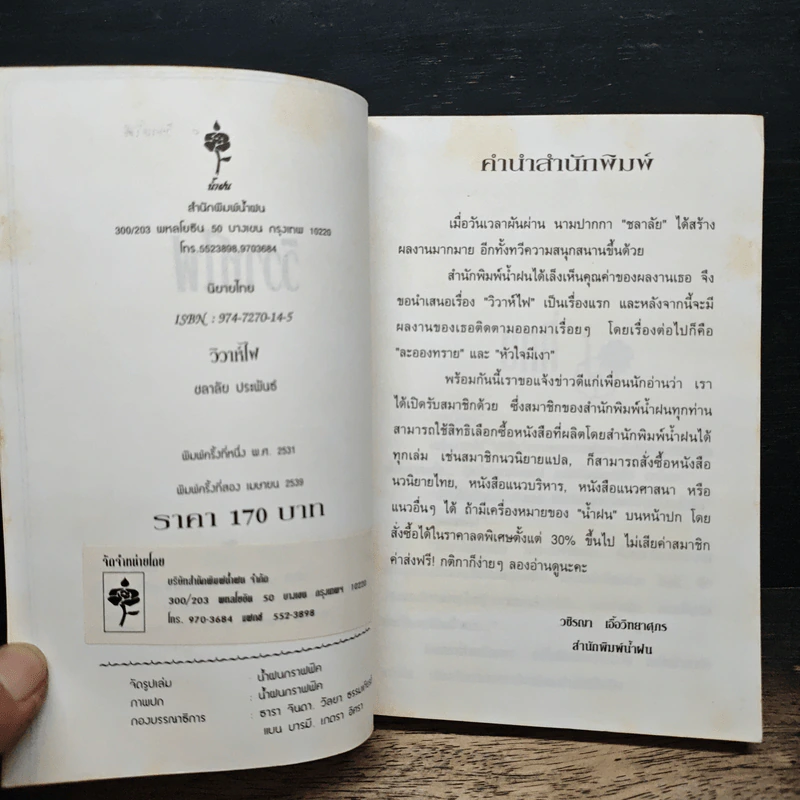 น้ำฝน
สำนักพิมพ์น้ำฝน
300/203 พหลโยธิน 50 บางเขน กรุงเทพ 10220
โทร.5523898,9703684
นิยายไทย
ISBN : 974-7270-14-5
วิวาห์ไฟ
ชลาลัย ประพันธ์
พิมพ์ครั้งที่หนึ่ง พ.ศ. 2531
พิมพ์ครั้งที่สอง เมษายน 2539
ราคา 170 บาท
จัดจำหน่ายโดย
บริษัทสำนักพิมพ์น้ำฝน จำกัด
300/203 พหลโยธิน 50 บางเขน กรุงเทพฯ 10220
โทร. 970-3684 แฟกส์ 552-3898
จัดรูปเล่ม : น้ำฝนกราฟฟิค
ภาพปก : น้ำฝนกราฟฟิค
กองบรรณาธิการ : ธารา จินดา, วิลยา
แบน บารมี, เกตรา อิศรา
คำนำสำนักพิมพ์
เมื่อวันเวลาผันผ่าน นามปากกา "ชลาลัย" ได้สร้าง
ผลงานมากมาย อีกทั้งทวีความสนุกสนานขึ้นด้วย
สำนักพิมพ์น้ำฝนได้เล็งเห็นคุณค่าของผลงานเธอ จึง
ขอนำเสนอเรื่อง "วิวาห์ไฟ" เป็นเรื่องแรก และหลังจากนี้จะมี
ผลงานของเธอติดตามออกมาเรื่อยๆ โดยเรื่องต่อไปก็คือ
"ละอองทราย" และ "หัวใจมีเงา"
พร้อมกันนี้เราขอแจ้งข่าวดีแก่เพื่อนนักอ่านว่า เรา
ได้เปิดรับสมาชิกด้วย ซึ่งสมาชิกของสำนักพิมพ์น้ำฝนทุกท่าน
สามารถใช้สิทธิเลือกซื้อหนังสือที่ผลิตโดยสำนักพิมพ์น้ำฝนได้
ทุกเล่ม เช่นสมาชิกนวนิยายแปล, ก็สามารถสั่งซื้อหนังสือ
นวนิยายไทย, หนังสือแนวบริหาร, หนังสือแนวศาสนา หรือ
แนวอื่นๆ ได้ ถ้ามีเครื่องหมายของ "น้ำฝน" บนหน้าปก โดย
สั่งซื้อได้ในราคาลดพิเศษตั้งแต่ 30% ขึ้นไป ไม่เสียค่าสมาชิก
ค่าส่งฟรี! กติกาก็ง่ายๆ ลองอ่านดูนะคะ
วชิรญา เอื้อวิทยาศุภร
สำนักพิมพ์น้ำฝน